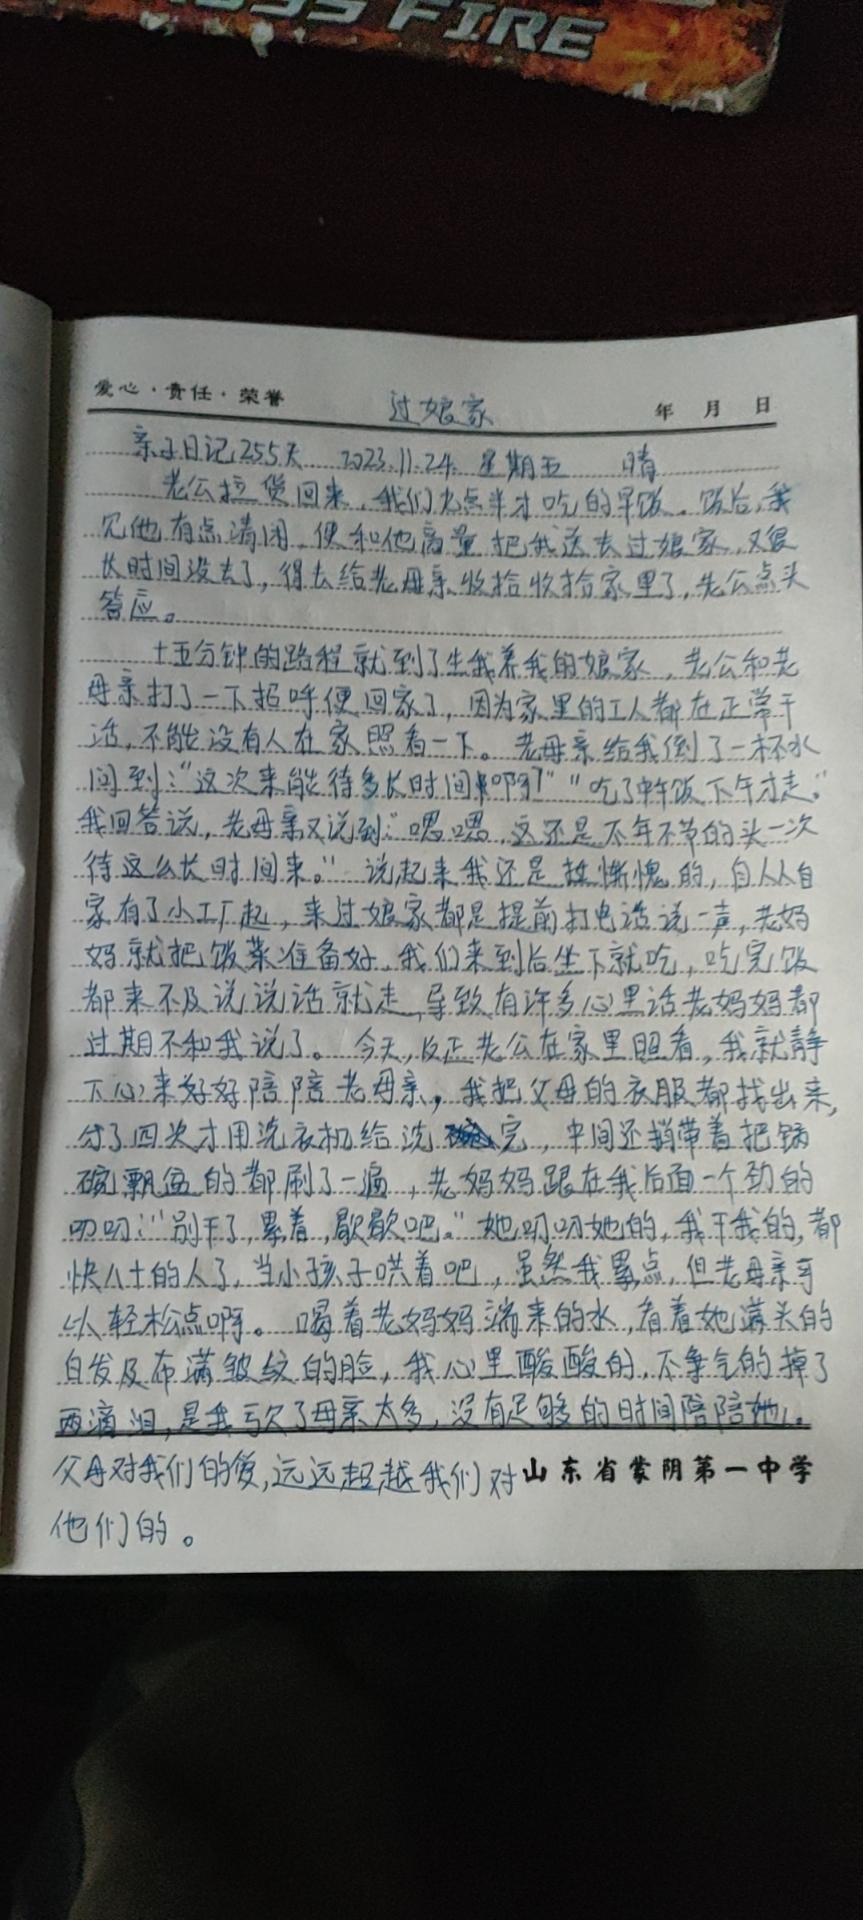 FIRE
爱心·责任·荣誉 过娘家 年 月 日
亲子日记255天 2023.11.24. 星期五 晴
老公拉货回来,我们九点半才吃的早饭。饭后,我
见他有点清闲,便和他商量把我送去过娘家,又很
长时间没去了,得去给老母亲收拾收拾家里了,老公点头
答应。
十五分钟的路程就到了生我养我的娘家,老公和老
母亲打了一下招呼便回家了,因为家里的工人都在正常干
活,不能没有人在家照看一下。老母亲给我倒了一杯水
问到:“这次来能待多长时间啊?”“吃了午饭下午才走。”
我回答说,老母亲又说到:“嗯嗯,这还是不年不节的头一次
待这么长时间来。”说起来我还是挺惭愧的,自从自
家有了小工厂起,来过娘家都是提前打电话说一声,老妈
妈就把饭菜准备好,我们来到后坐下就吃,吃完饭
都来不及说说话就走,导致有许多心里话老妈妈都
过期不和我说了。今天,反正老公在家里照看,我就静
下心来好好陪陪老母亲,我把父母的衣服都找出来,
分了四次才用洗衣机给洗完,中间还捎带着把锅
碗瓢盆的都刷了一遍,老妈妈跟在我后面一个劲的
叨叨:“别干了,累着,歇歇吧。”她叨叨她的,我干我的,都
快八十的人了,当小孩子哄着吧,虽然我累点,但老母亲可
以轻松点啊。喝着老妈妈端来的水,看着她满头的
白发及布满皱纹的脸,我心里酸酸的,不争气的掉了
两滴泪,是我亏欠了母亲太多,没有足够的时间陪陪她。
父母对我们的爱,远远超越我们对 山东省蒙阴第一中学
他们的。